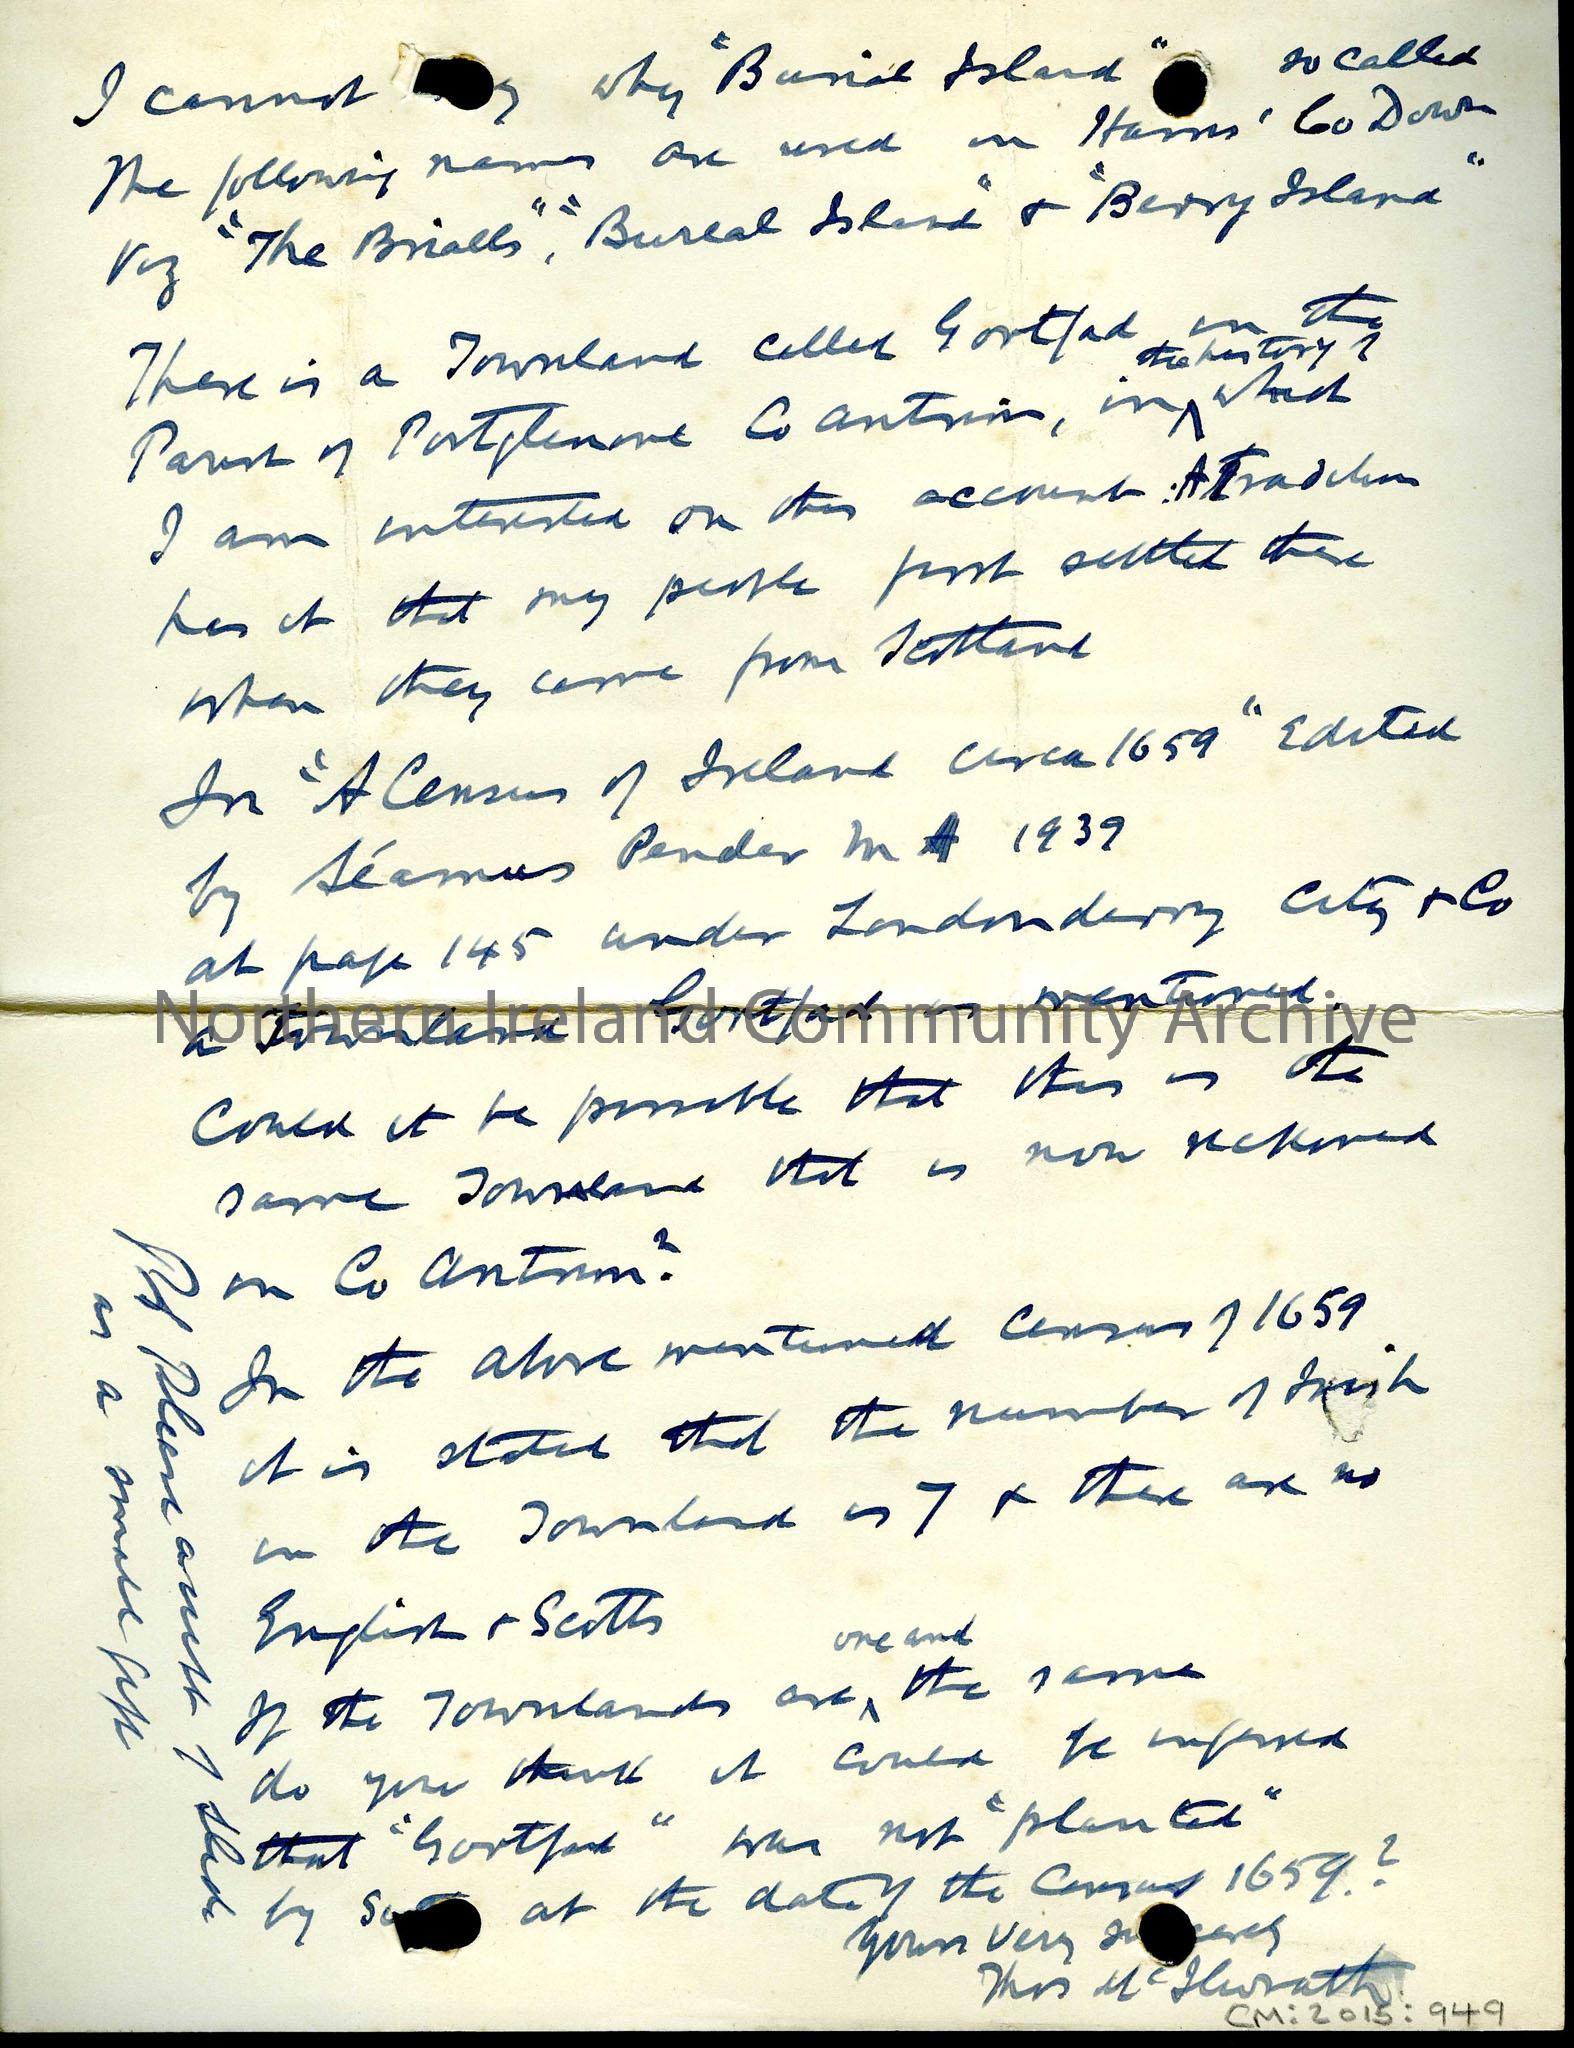 I cannot why "Burial Island" so called
The following names are used in Harris' Co Down
Viz "The Brialls", "Bureal Island" & "Berry Island"
There is a Townland called Gortfad in the
the history?
Parish of Portglenone Co Antrim, in which
I am interested on this account: A Tradition
has it that my people first settled there
when they came from Scotland
In "A Census of Ireland circa 1659" Edited
by Séamus Pender M A 1939
at page 145 under Londonderry City & Co
a Townland Gortfad is mentioned.
Northern Ireland Community Archive
Could it be possible that this is the
same Townland that is now reckoned
in Co Antrim?
In the above mentioned Census of 1659
it is stated that the number of Irish
in the Townland is 7 & there are no
English & Scotts
one and
If the Townlands are the same
do you think it could be inferred
that "Gortfad" was not "planted"
by at the date of the Census 1659.?
Yours very sincerely
Thos McIlwrath
CM:2015:949
Please accept
as a small gift